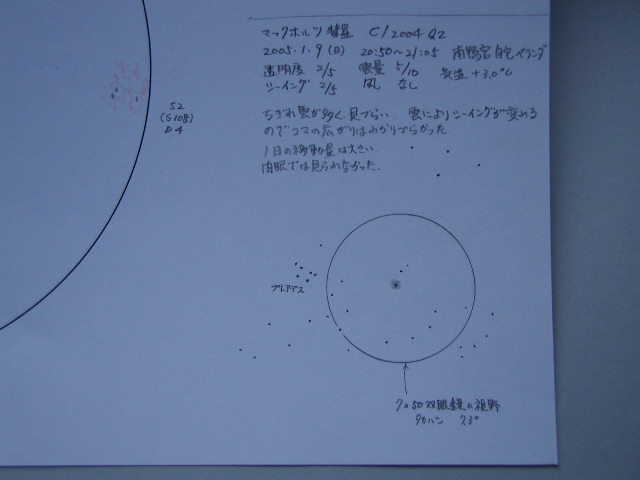 マックホルツ彗星 C/2004 Q2
2005.1.9(日) 20:50〜21:05 南鴨宮 自宅ベランダ
透明度 2/5 雲量 5/10 気温 +3.0℃
シーイング 2/5 風 なし
ちぎれ雲が多く、見づらい 雲によりシーイングが変わる
のでコマの広がりはわかりづらかった
1日の移動量は大きい.
肉眼では見られなかった.
S2
(S108)
D4
プレアデス
7×50双眼鏡の視野
タカハシ 7.3°